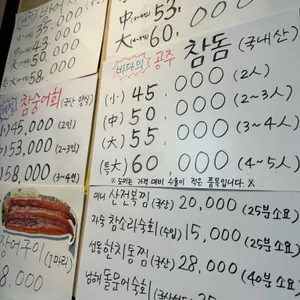 35,000
43,000
50,000
58,000
中
53,
大
60,000
바다의 공주 참돔 (국산산)
(小) 45,000 (2인)
(中) 50,000 (2~3人)
(大) 55,000 (3~4人)
(특大) 60,000 (4~5人)
※ 도미는 가격 대비 수율이 적은 품목입니다. ※
참숭어회 (국산 양식)
45,000 (2인)
53,000 (2~3인)
58,000 (3~4인)
장어구이 (1마리)
8,000
미니 산전복찜 (국산) 20,000 (25분소요)
자숙 참소라숙회 (수입) 15,000 (25분 소요)
선동 한치통찜 (국산) 28,000 (40분 소요)
남해 돌문어숙회